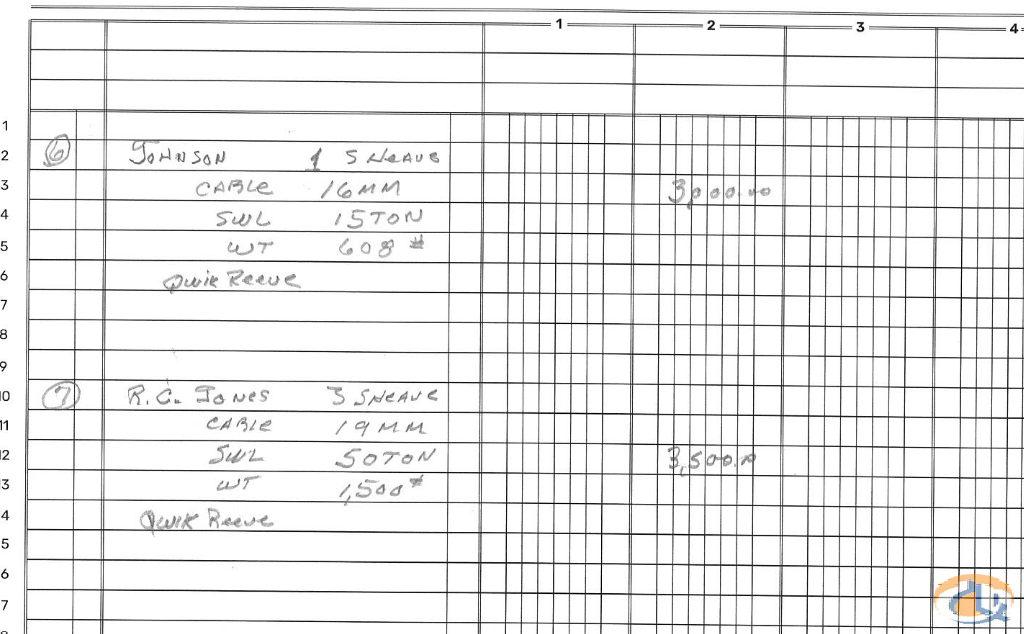 1 2 3 4
1
2 6 JOHNSON 1 SHEAVE
3 CABLE 16MM 3,000.00
4 SWL 15TON
5 WT 608#
6 Qwik Reeve
7
8
9
10 7 R.C. JONES 3 SHEAVE
11 CABLE 19MM
12 SWL 50TON 3,500.00
13 WT 1,500#
4 QWIK Reeve
5
6
7